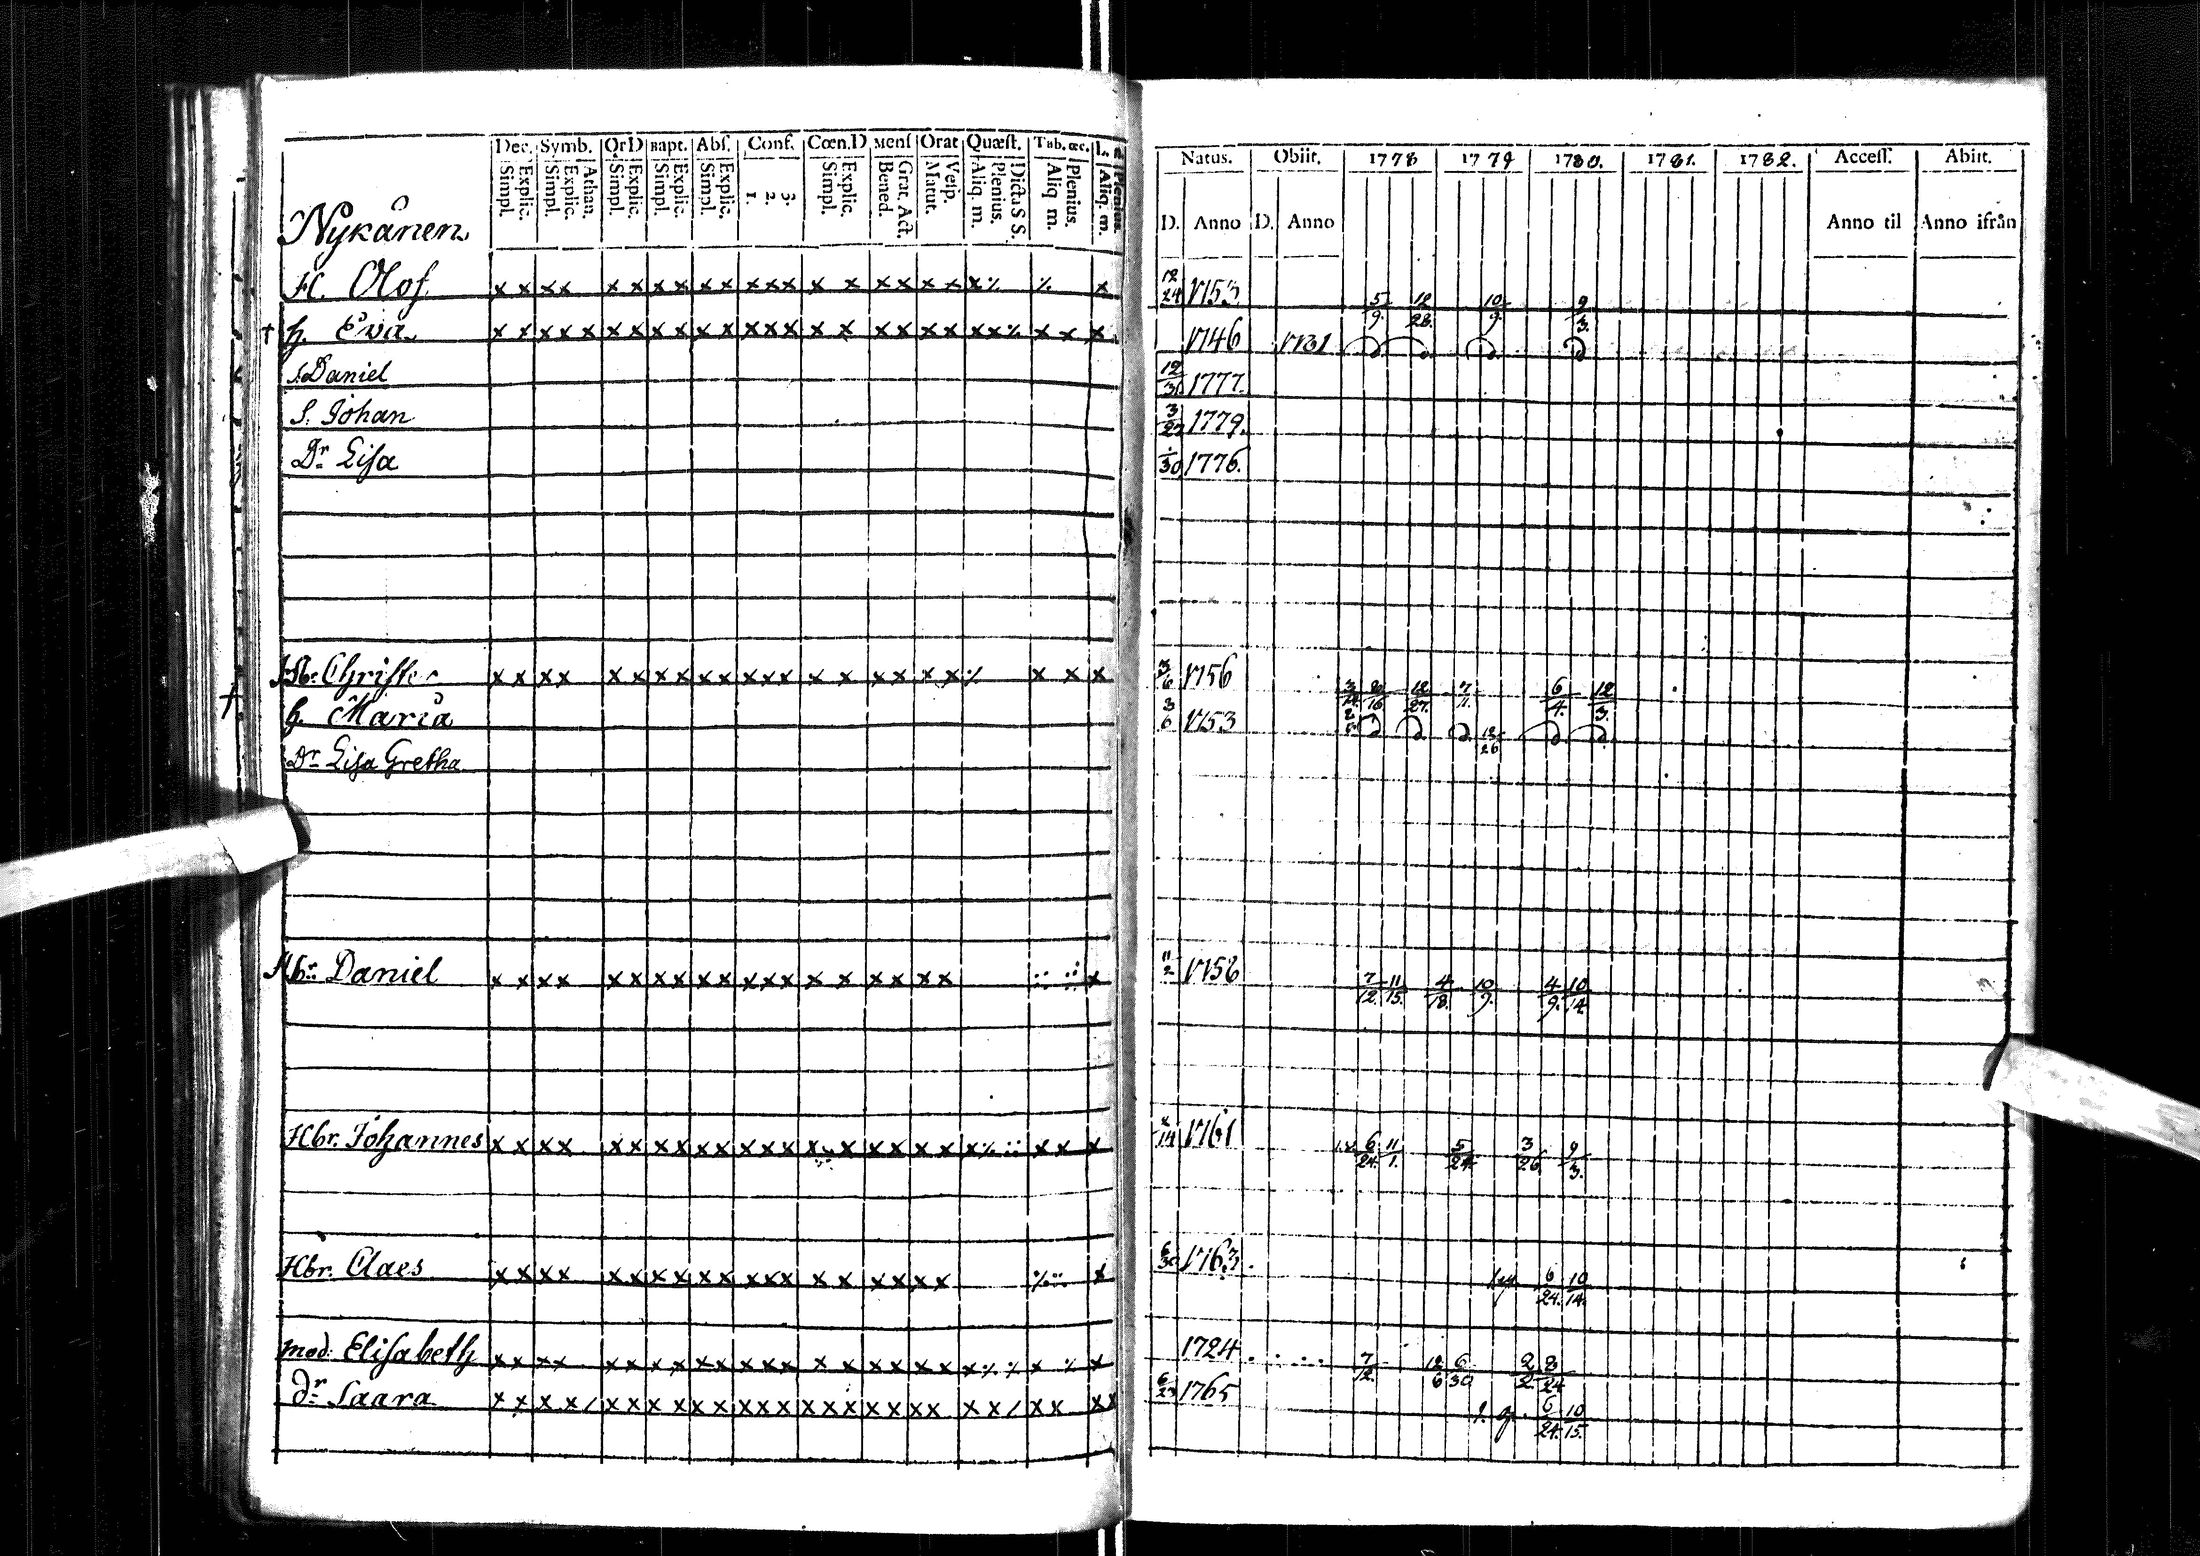 Dec. Symb. Or D Bapt. Abs. Conf. Cœn. D Mens Orat Quæst. Tab. œc.
Simpl. Explic. Simpl. Explic. Athan. Simpl. Explic. Simpl. Explic. Simpl. Explic. 1. 2. 3. Simpl. Explic. Bened. Grat. Act. Matut. Vesp. Aliq. m. Plenius. Dicta S S. Aliq. m. Plenius. Aliq. m. Plenius.
Natus. Obiit. 1778 1779 1780. 1781. 1782. Access. Abiit.
D. Anno D. Anno Anno til Anno ifrån
Nykånen
H. Olof x x x x x x x x x x x x x x x x x x x x ٪ ٪ x 12/24 1753 5/9. 12/28. 10/9. 9/3.
† h. Eva x x x x x x x x x x x x x x x x x x x x x x ٪ x x x 1746 1781
s. Daniel 12/31 1777.
S. Johan 3/27 1779.
Dr Lisa /30 1776.
Hbr Christer x x x x x x x x x x x x x x x x x x x ٪ x x x 3/6 1756 12/27. 7/1. 6/4. 12/3.
† h. Maria 3/6 1753 12/26
Dr Lisa Gretha
Hbr Daniel x x x x x x x x x x x x x x x x x x x x 11/2 1758 7/12. 11/15. 4/18. 10/9. 4/9. 10/14
Hbr. Johannes x x x x x x x x x x x x x x x x x x x x x ٪ x x x /14 1761 6/24. 11/1. 5/24 3/26 9/3.
Hbr. Claes x x x x x x x x x x x x x x x x x x x x 6/30 1763. 6/24. 10/14.
mod: Elisabeth x x x x x x x x x x x x x x x x x x x x x ٪ ٪ x ٪ x 1724 7/12. 12/6 6/30 2/2. 8/24
dr Saara x x x x / x x x x x x x x x x x x x x x x x x / x x x x 6/23 1765 6/24. 10/15.